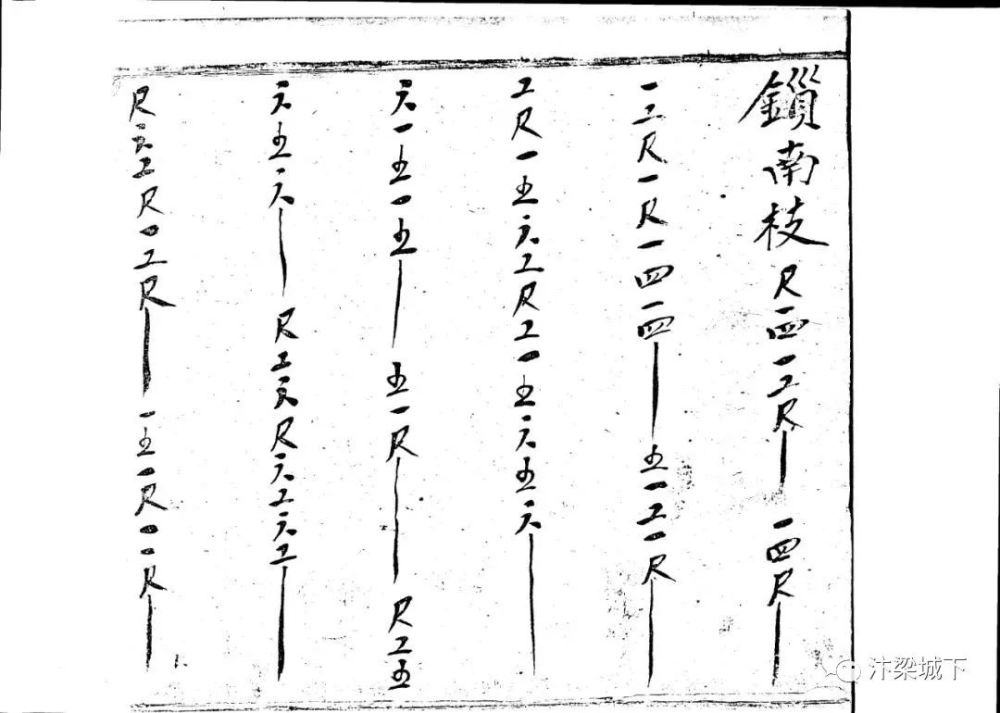 鎻南枝 尺一四一工尺 一四尺
一工尺一尺一四一四 五一工一尺
工尺一五六工尺工一五六五六
六一五一五 五一尺 尺工五
六五六 尺工六尺六工六工
尺六工尺一工尺 一五一尺一一尺
汴梁城下